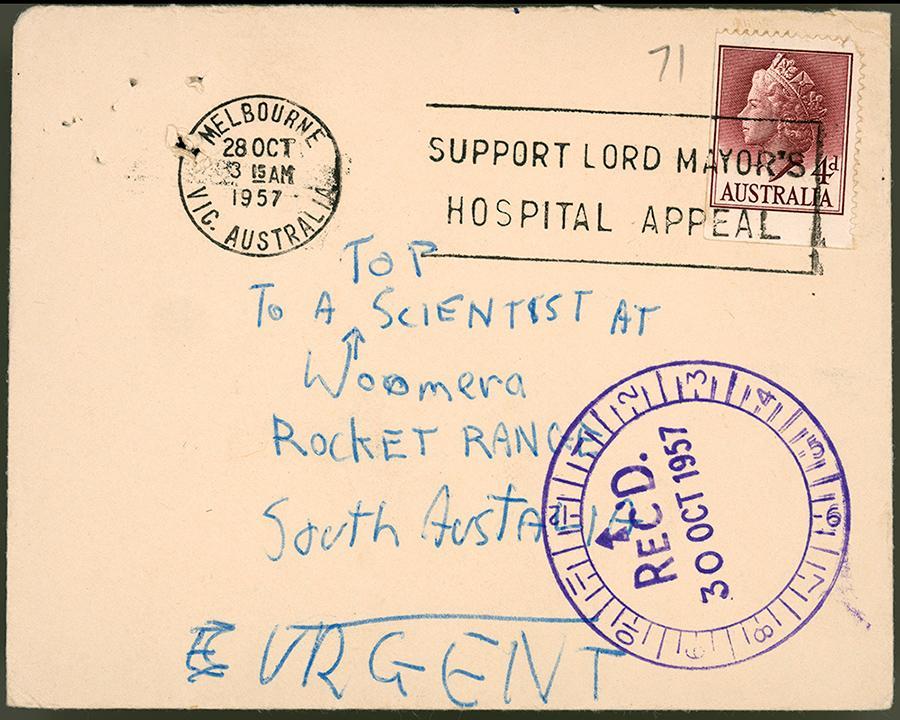 71
MELBOURNE
28 OCT
3 15 AM
1957
VIC. AUSTRALIA
SUPPORT LORD MAYOR'S
HOSPITAL APPEAL
4d
AUSTRALIA
TOP
TO A SCIENTIST AT
Woomera
ROCKET RANGE
South Australia
URGENT
REC'D.
30 OCT 1957
1 2 3 4 5 6 7 8 9 10 11 12